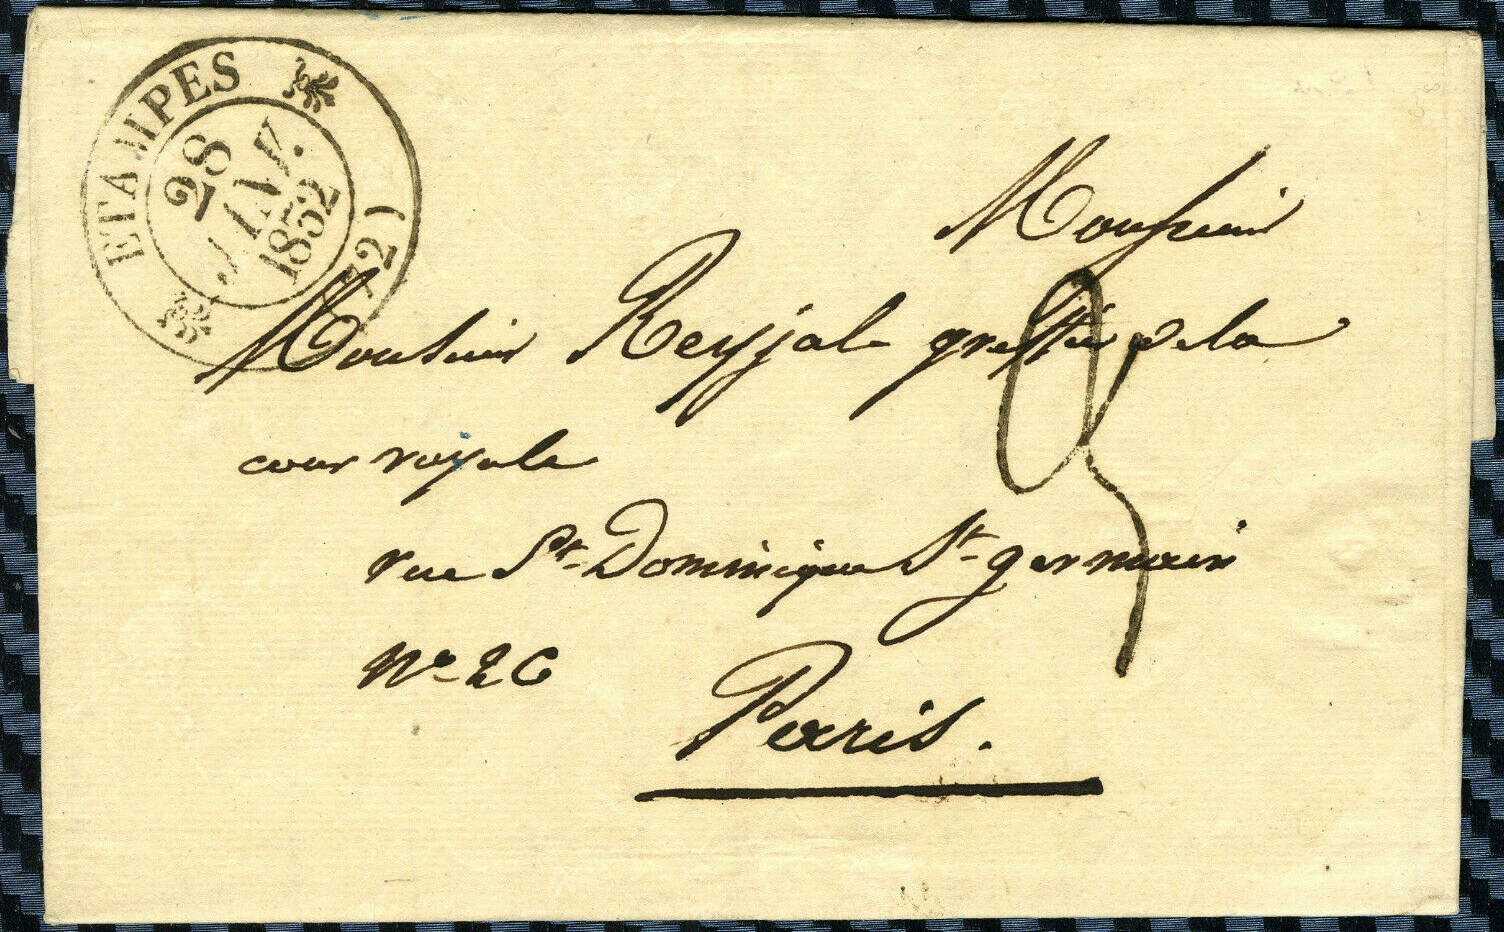 ETAMPES (72)
28
JANV.
1852
Monsieur
Monsieur Reyjal greffier de la
cour royale
rue St. Dominique St. germain
No. 26
Paris.